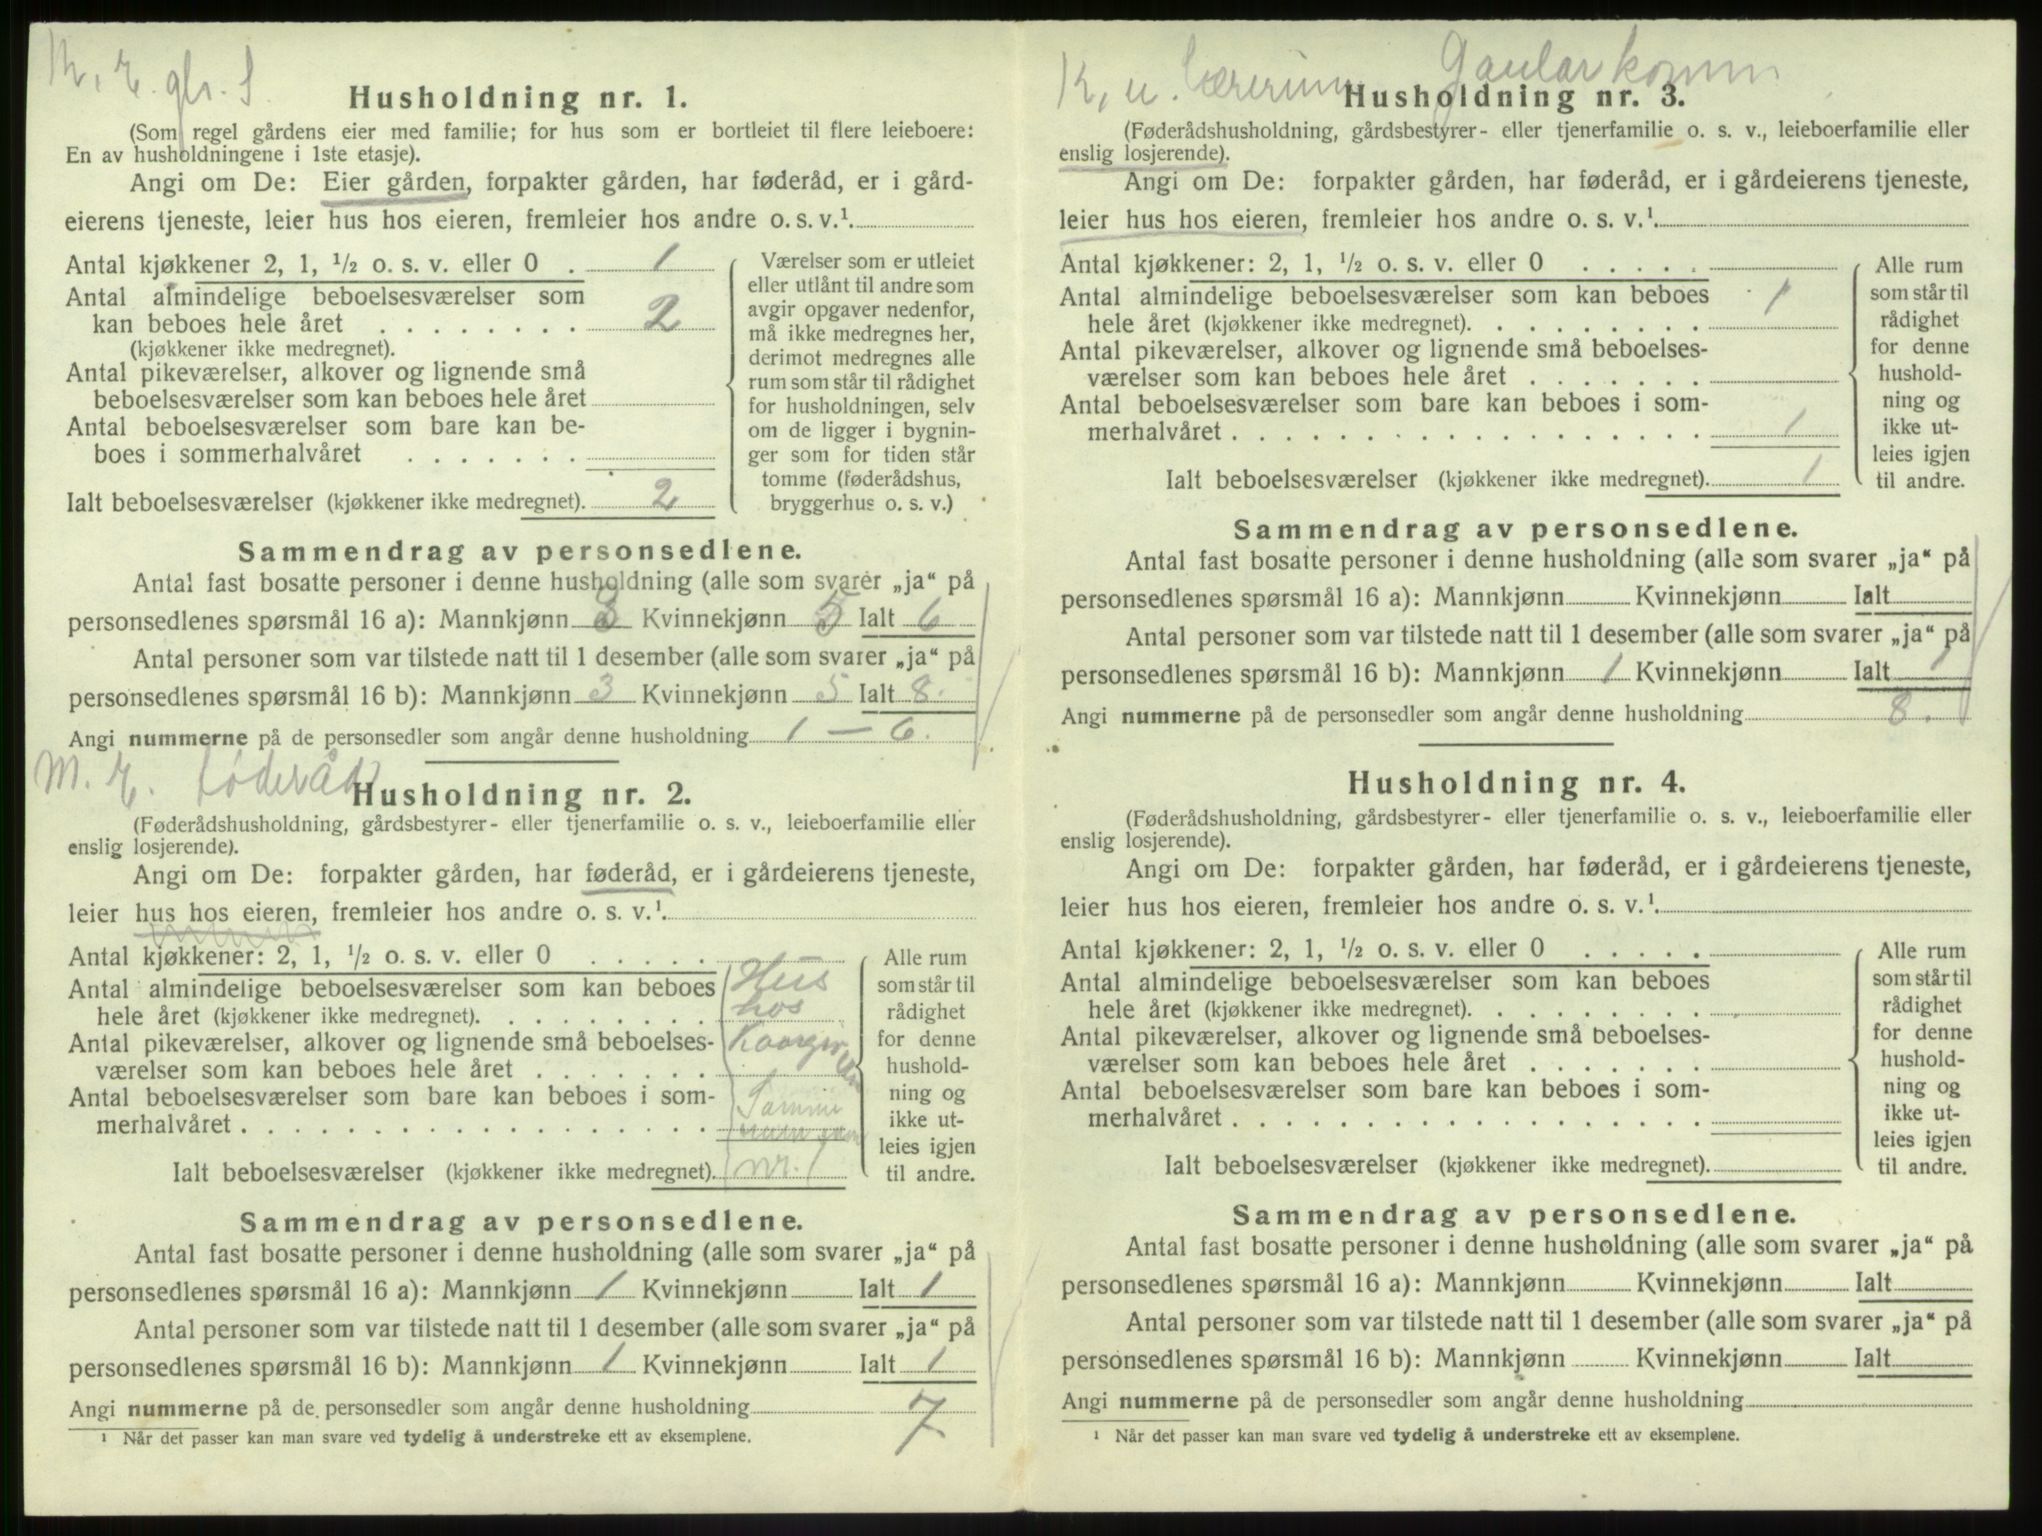 Husholdning nr. 1.
(Som regel gårdens eier med familie; for hus som er bortleiet til flere leieboere:
En av husholdningene i 1ste etasje).
Angi om De: Eier gården, forpakter gården, har føderåd, er i gård-
eierens tjeneste, leier hus hos eieren, fremleier hos andre o. s. v.¹.
Antal kjøkkener 2, 1, ½ o. s. v. eller 0 . 1
Antal almindelige beboelsesværelser som
kan beboes hele året . . . . . . . . 2
(kjøkkener ikke medregnet).
Antal pikeværelser, alkover og lignende små
beboelsesværelser som kan beboes hele året
Antal beboelsesværelser som bare kan be-
boes i sommerhalvåret . . . . . . .
Ialt beboelsesværelser (kjøkkener ikke medregnet). 2
Værelser som er utleiet
eller utlånt til andre som
avgir opgaver nedenfor,
må ikke medregnes her,
derimot medregnes alle
rum som står til rådighet
for husholdningen, selv
om de ligger i bygnin-
ger som for tiden står
tomme (føderådshus,
bryggerhus o. s. v.)
Sammendrag av personsedlene.
Antal fast bosatte personer i denne husholdning (alle som svarer „ja“ på
personsedlenes spørsmål 16 a): Mannkjønn 3 Kvinnekjønn 5 Ialt 6
Antal personer som var tilstede natt til 1 desember (alle som svarer „ja“ på
personsedlenes spørsmål 16 b): Mannkjønn 3 Kvinnekjønn 5 Ialt 8.
Angi nummerne på de personsedler som angår denne husholdning 1 — 6.
M. E. føderåd
Husholdning nr. 2.
(Føderådshusholdning, gårdsbestyrer- eller tjenerfamilie o. s. v., leieboerfamilie eller
enslig losjerende).
Angi om De: forpakter gården, har føderåd, er i gårdeierens tjeneste,
leier hus hos eieren, fremleier hos andre o. s. v.¹.
Antal kjøkkener: 2, 1, ½ o. s. v. eller 0 . . . . .
Antal almindelige beboelsesværelser som kan beboes
hele året (kjøkkener ikke medregnet). . . . . . . .
Antal pikeværelser, alkover og lignende små beboelses-
værelser som kan beboes hele året . . . . . . .
Antal beboelsesværelser som bare kan beboes i som-
merhalvåret . . . . . . . . . . . . . . . . . .
Ialt beboelsesværelser (kjøkkener ikke medregnet).
Hus
hos
nr. 1
Alle rum
som står til
rådighet
for denne
hushold-
ning og
ikke ut-
leies igjen
til andre.
Sammendrag av personsedlene.
Antal fast bosatte personer i denne husholdning (alle som svarer „ja“ på
personsedlenes spørsmål 16 a): Mannkjønn 1 Kvinnekjønn Ialt 1
Antal personer som var tilstede natt til 1 desember (alle som svarer „ja“ på
personsedlenes spørsmål 16 b): Mannkjønn 1 Kvinnekjønn Ialt 1
Angi nummerne på de personsedler som angår denne husholdning 7
¹ Når det passer kan man svare ved tydelig å understreke ett av eksemplene.
K. u. Gaular komm
Husholdning nr. 3.
(Føderådshusholdning, gårdsbestyrer- eller tjenerfamilie o. s. v., leieboerfamilie eller
enslig losjerende).
Angi om De: forpakter gården, har føderåd, er i gårdeierens tjeneste,
leier hus hos eieren, fremleier hos andre o. s. v.¹.
Antal kjøkkener: 2, 1, ½ o. s. v. eller 0 . . . . .
Antal almindelige beboelsesværelser som kan beboes 1
hele året (kjøkkener ikke medregnet). . . . . . . . .
Antal pikeværelser, alkover og lignende små beboelses-
værelser som kan beboes hele året . . . . . . .
Antal beboelsesværelser som bare kan beboes i som-
merhalvåret . . . . . . . . . . . . . . . . . . 1
Ialt beboelsesværelser (kjøkkener ikke medregnet). 1
Alle rum
som står til
rådighet
for denne
hushold-
ning og
ikke ut-
leies igjen
til andre.
Sammendrag av personsedlene.
Antal fast bosatte personer i denne husholdning (alle som svarer „ja“ på
personsedlenes spørsmål 16 a): Mannkjønn Kvinnekjønn Ialt
Antal personer som var tilstede natt til 1 desember (alle som svarer „ja“ på
personsedlenes spørsmål 16 b): Mannkjønn 1 Kvinnekjønn Ialt 1
Angi nummerne på de personsedler som angår denne husholdning 8.
Husholdning nr. 4.
(Føderådshusholdning, gårdsbestyrer- eller tjenerfamilie o. s. v., leieboerfamilie eller
enslig losjerende).
Angi om De: forpakter gården, har føderåd, er i gårdeierens tjeneste,
leier hus hos eieren, fremleier hos andre o. s. v.¹.
Antal kjøkkener: 2, 1, ½ o. s. v. eller 0 . . . . .
Antal almindelige beboelsesværelser som kan beboes
hele året (kjøkkener ikke medregnet). . . . . . . . .
Antal pikeværelser, alkover og lignende små beboelses-
værelser som kan beboes hele året . . . . . . .
Antal beboelsesværelser som bare kan beboes i som-
merhalvåret . . . . . . . . . . . . . . . . . .
Ialt beboelsesværelser (kjøkkener ikke medregnet).
Alle rum
som står til
rådighet
for denne
hushold-
ning og
ikke ut-
leies igjen
til andre.
Sammendrag av personsedlene.
Antal fast bosatte personer i denne husholdning (alle som svarer „ja“ på
personsedlenes spørsmål 16 a): Mannkjønn Kvinnekjønn Ialt
Antal personer som var tilstede natt til 1 desember (alle som svarer „ja“ på
personsedlenes spørsmål 16 b): Mannkjønn Kvinnekjønn Ialt
Angi nummerne på de personsedler som angår denne husholdning
¹ Når det passer kan man svare ved tydelig å understreke ett av eksemplene.